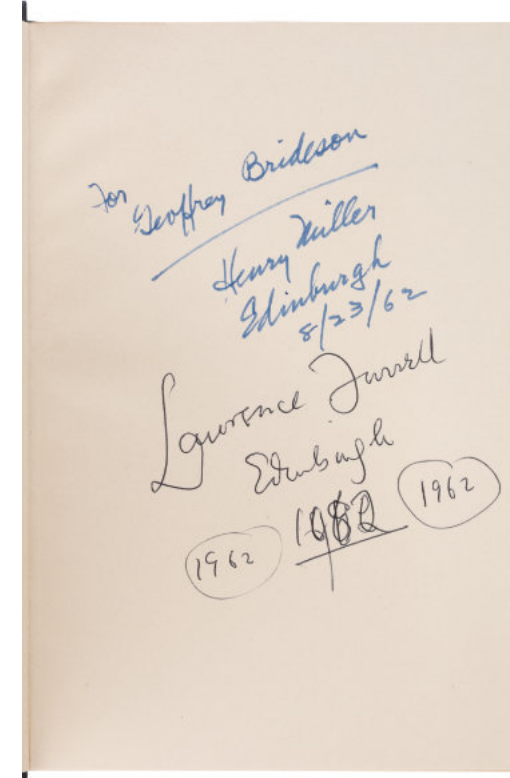 For
Geoffrey Brideson
Henry Miller
Edinburgh
8/23/62
Lawrence Durrell
Edinburgh
1962 1962 1962